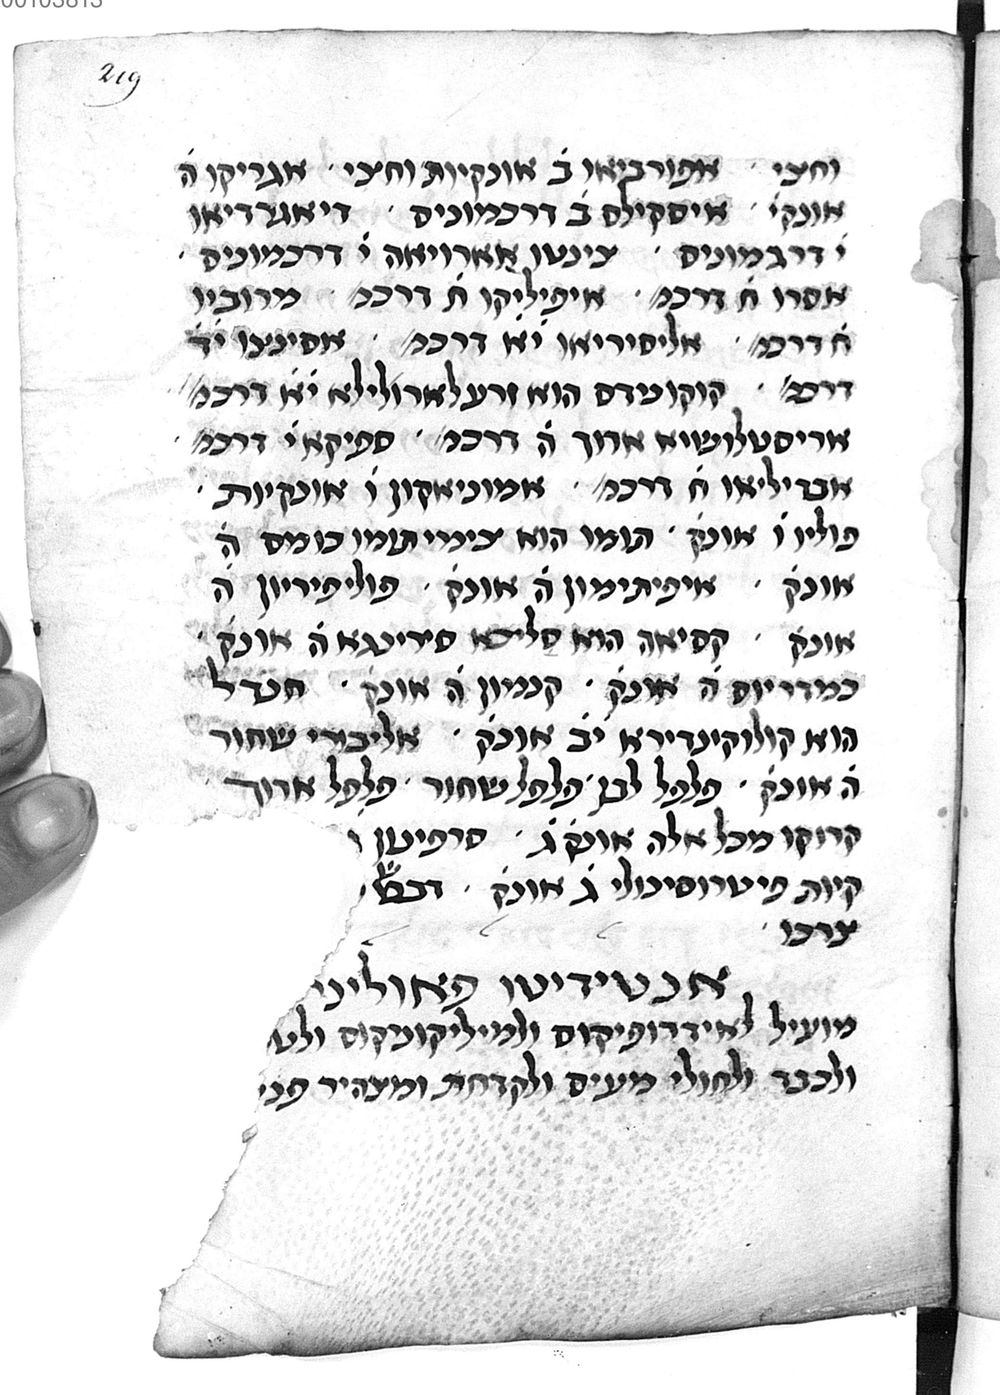 00105813
219
וחצי · אפורביאו ב̇ אונקיות וחצי · אגריקו ה̇
אונקי̇ · איסקילס ב̇ דרכמוניס · דיאגרדיאו
י̇ דרגמוניס · צינטו אארויאה י̇ דרכמוניס ·
אסרו ח̇ דרכמ̸ · איפיליקו ח̇ דרכמ̸ · מרוביו
ח̇ דרכמ̸ · אליסיריאו י̇א̇ דרכמ̸ · אסינצו י̇ד̇
דרכמ̸ · קוקונידס הוא זרע לארולילא י̇א̇ דרכמ̸
אריסטלוגיא ארוך ה̇ דרכמ̸ · ספיקא י̇ דרכמ̸ ·
אבריליאו ח̇ דרכמ̸ · אמוניאקון ו̇ אונקיות ·
פוליו ו̇ אונק̇ · תומו הוא צימרי תומו כומס ה̇
אונק̇ · איפיתימון ה̇ אונק̇ · פוליפיריון ה̇
אונק̇ · קסיאה הוא סליכא סירינגא ה̇ אונק̇ ·
כמדריוס ה̇ אונק̇ · קנמון ה̇ אונק̇ · חנדל
הוא קולוקינדירא י̇ב̇ אונק̇ · אליבורי שחור
ה̇ אונק̇ · פלפל לבן · פלפל שחור · פלפל ארוך ·
קרוקו מכל אלה אונק̇ ג̇ · סרפינון
קיות פיטרוסינולי ג̇ אונק̇ · דבש
צרכו ·
אנטידיטו פאולינ
מועיל לאידרופיקוס ולמיליקוניקוס ולט
ולכבד ולחולי מעים ולקדחת ומצהיר פני